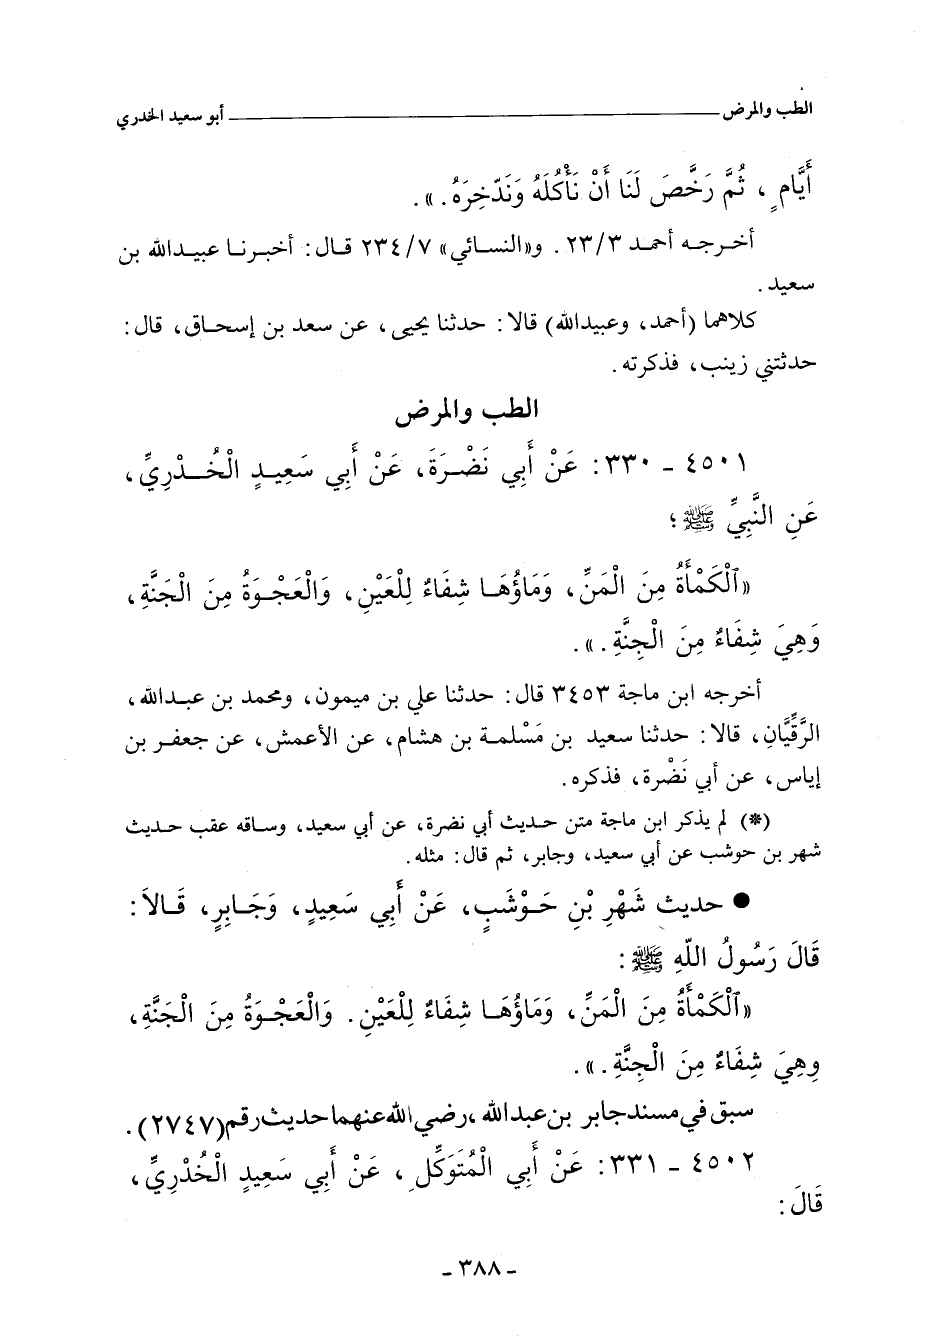 الطب والمرض ــــــــــ أبو سعيد الخدري
أَيَّامٍ ، ثُمَّ رَخَّصَ لَنَا أَنْ نَأْكُلَهُ وَنَدَّخِرَهُ . » .
أخرجه أحمد ٢٣/٣ . و«النسائي» ٢٣٤/٧ قال : أخبرنا عبيدالله بن
سعيد .
كلاهما (أحمد، وعبيدالله) قالا : حدثنا يحيى ، عن سعد بن إسحاق ، قال :
حدثتني زينب، فذكرته .
الطب والمرض
٤٥٠١ - ٣٣٠ : عَنْ أَبِي نَضْرَةَ، عَنْ أَبِي سَعِيدٍ الْخُدْرِيِّ ،
عَنِ النَّبِيِّ ﷺ ؛
«ٱلْكَمْأَةُ مِنَ الْمَنِّ ، وَمَاؤُهَا شِفَاءٌ لِلْعَيْنِ ، وَالْعَجْوَةُ مِنَ الْجَنَّةِ ،
وَهِيَ شِفَاءٌ مِنَ الْجِنَّةِ . » .
أخرجه ابن ماجة ٣٤٥٣ قال : حدثنا علي بن ميمون ، ومحمد بن عبدالله ،
الرَّقِّيَّانِ ، قالا : حدثنا سعيد بن مَسْلمة بن هشام ، عن الأعمش ، عن جعفر بن
إياس ، عن أبي نَضْرة ، فذكره .
(*) لم يذكر ابن ماجة متن حديث أبي نضرة، عن أبي سعيد، وساقه عقب حديث
شهر بن حوشب عن أبي سعيد، وجابر، ثم قال : مثله .
● حديث شَهْرِ بْنِ حَوْشَبٍ ، عَنْ أَبِي سَعِيدٍ ، وَجَابِرٍ ، قَالاَ :
قَالَ رَسُولُ اللّهِ ﷺ :
«ٱلْكَمْأَةُ مِنَ الْمَنِّ ، وَمَاؤُهَا شِفَاءٌ لِلْعَيْنِ . وَالْعَجْوَةُ مِنَ الْجَنَّةِ ،
وِهِيَ شِفَاءٌ مِنَ الْجِنَّةِ . » .
سبق في مسند جابر بن عبد الله ، رضي الله عنهما حديث رقم (٢٧٤٧) .
٤٥٠٢ - ٣٣١ : عَنْ أَبِي الْمُتَوَكِّلِ ، عَنْ أَبِي سَعِيدٍ الْخُدْرِيِّ ،
قَالَ :
- ٣٨٨ -